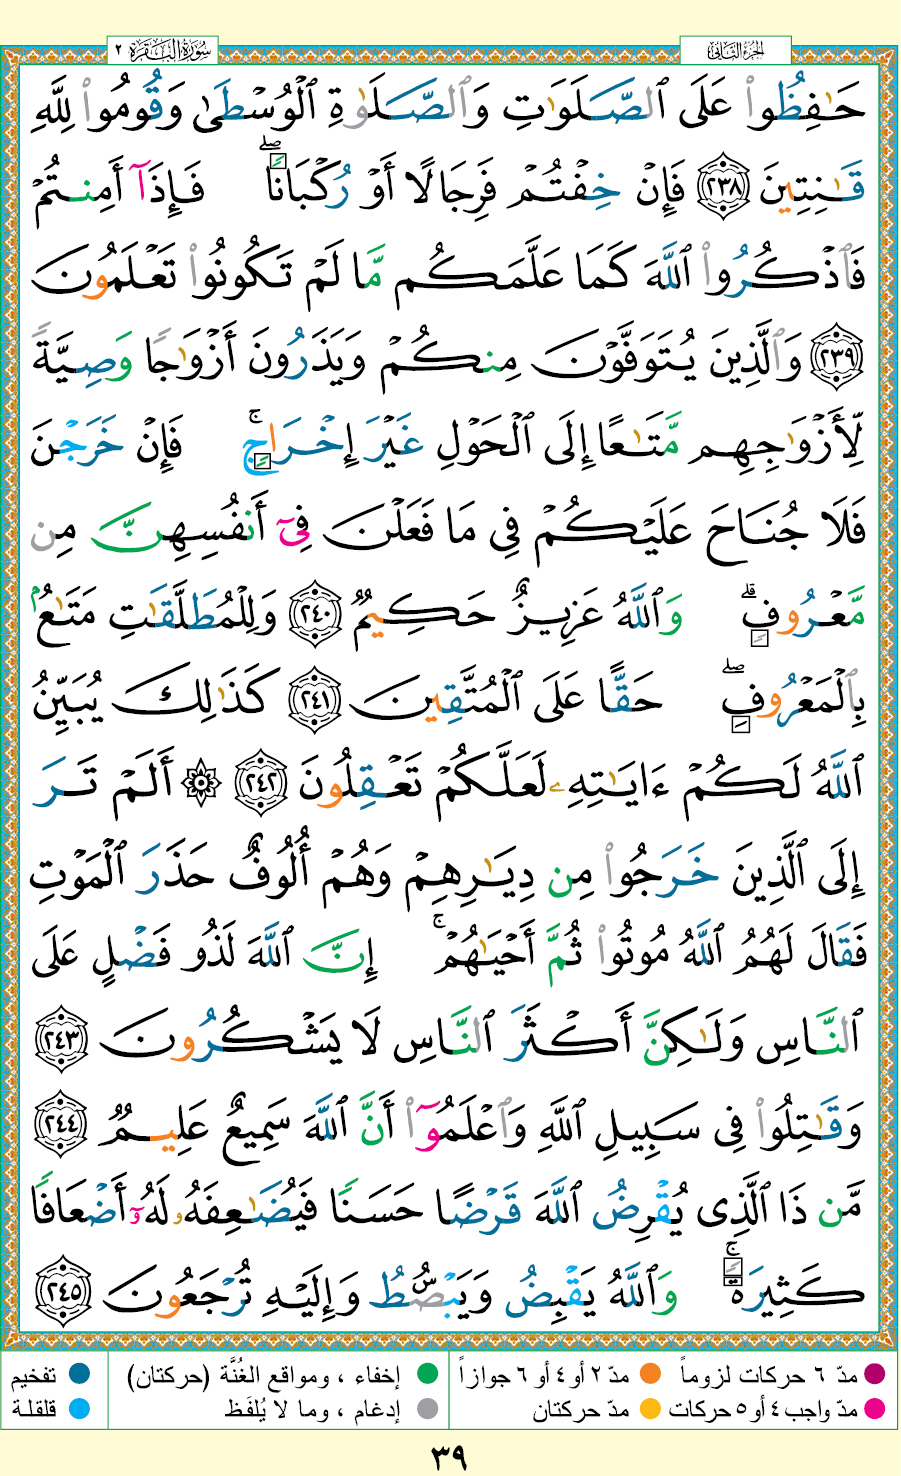 الجزء الثاني
سورة البقرة ٢
حَـٰفِظُوا۟ عَلَى ٱلصَّلَوَٰتِ وَٱلصَّلَوٰةِ ٱلْوُسْطَىٰ وَقُومُوا۟ لِلَّهِ
قَـٰنِتِينَ ٢٣٨ فَإِنْ خِفْتُمْ فَرِجَالًا أَوْ رُكْبَانًا ۖ فَإِذَآ أَمِنتُمْ
فَٱذْكُرُوا۟ ٱللَّهَ كَمَا عَلَّمَكُم مَّا لَمْ تَكُونُوا۟ تَعْلَمُونَ
٢٣٩ وَٱلَّذِينَ يُتَوَفَّوْنَ مِنكُمْ وَيَذَرُونَ أَزْوَٰجًا وَصِيَّةً
لِّأَزْوَٰجِهِم مَّتَـٰعًا إِلَى ٱلْحَوْلِ غَيْرَ إِخْرَاجٍ ۚ فَإِنْ خَرَجْنَ
فَلَا جُنَاحَ عَلَيْكُمْ فِى مَا فَعَلْنَ فِىٓ أَنفُسِهِنَّ مِن
مَّعْرُوفٍ ۗ وَٱللَّهُ عَزِيزٌ حَكِيمٌ ٢٤٠ وَلِلْمُطَلَّقَـٰتِ مَتَـٰعٌۢ
بِٱلْمَعْرُوفِ ۖ حَقًّا عَلَى ٱلْمُتَّقِينَ ٢٤١ كَذَٰلِكَ يُبَيِّنُ
ٱللَّهُ لَكُمْ ءَايَـٰتِهِۦ لَعَلَّكُمْ تَعْقِلُونَ ٢٤٢ ۞ أَلَمْ تَرَ
إِلَى ٱلَّذِينَ خَرَجُوا۟ مِن دِيَـٰرِهِمْ وَهُمْ أُلُوفٌ حَذَرَ ٱلْمَوْتِ
فَقَالَ لَهُمُ ٱللَّهُ مُوتُوا۟ ثُمَّ أَحْيَـٰهُمْ ۚ إِنَّ ٱللَّهَ لَذُو فَضْلٍ عَلَى
ٱلنَّاسِ وَلَـٰكِنَّ أَكْثَرَ ٱلنَّاسِ لَا يَشْكُرُونَ ٢٤٣
وَقَـٰتِلُوا۟ فِى سَبِيلِ ٱللَّهِ وَٱعْلَمُوٓا۟ أَنَّ ٱللَّهَ سَمِيعٌ عَلِيمٌ ٢٤٤
مَّن ذَا ٱلَّذِى يُقْرِضُ ٱللَّهَ قَرْضًا حَسَنًا فَيُضَـٰعِفَهُۥ لَهُۥٓ أَضْعَافًا
كَثِيرَةً ۚ وَٱللَّهُ يَقْبِضُ وَيَبْصُۜطُ وَإِلَيْهِ تُرْجَعُونَ ٢٤٥
مدّ ٦ حركات لزوماً مدّ ٢ أو ٤ أو ٦ جوازاً إخفاء ، ومواقع الغُنَّة (حركتان) تفخيم
مدّ واجب ٤ أو ٥ حركات مدّ حركتان إدغام ، وما لا يُلفَظ قلقلة
٣٩